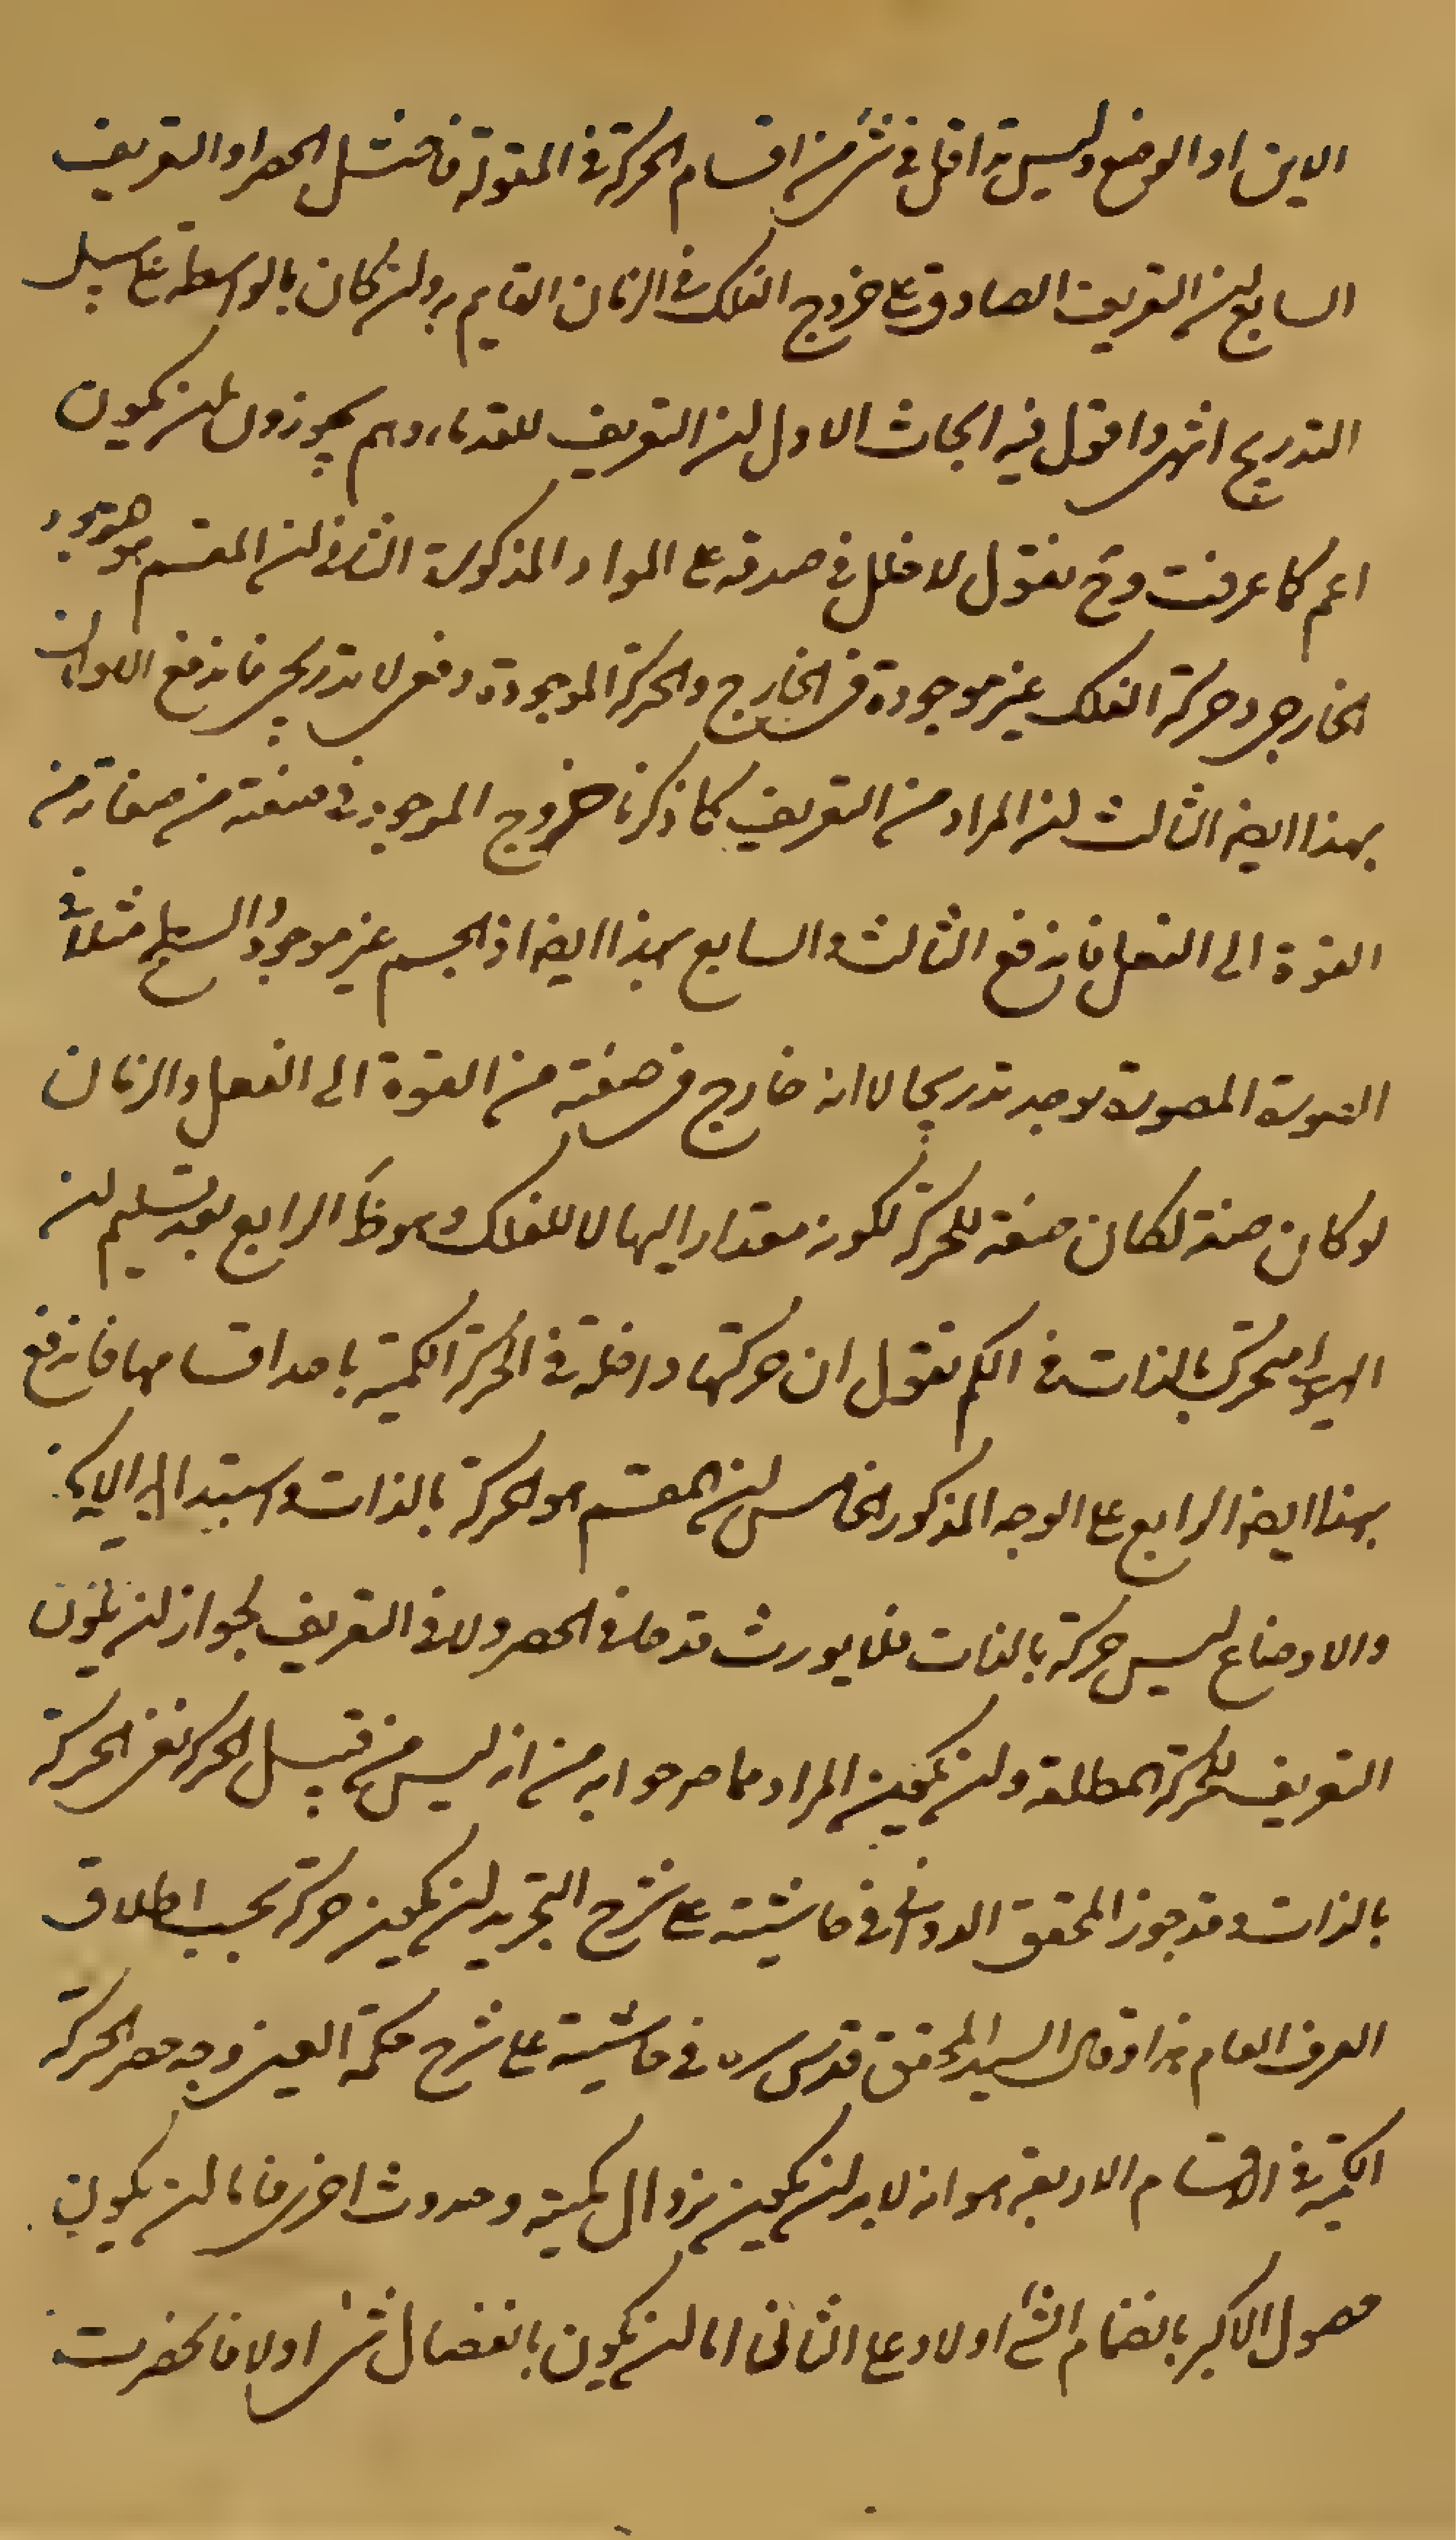 الاين او الوضع وليس بداخل في شئ من اقسام الحركة في المقولة فاختل الحصر او التعريف
السابع ان التعريف الصادق على خروج الفلك في الزمان القايم به وان كان بالواسطة على سبيل
التدريج انتهى واقول فيه ابحاث الاول ان التعريف للقدماء وهم يجوزون ان يكون
اعم كما عرفت وح نقول لا خلل في صدقه على المواد المذكورة الثاني ان المقسم هو
الخارجي وحركة الفلك غير موجودة في الخارج والحركة الموجودة دفعى لا تدريجي فاندفع
بهذا ايضا الثالث ان المراد من التعريف كما ذكرنا خروج الموجود في صفة من صفاته من
القوة الى الفعل فاندفع الثالث والسابع بهذا ايضا اذ الجسم غير موجود مثلا في
الصورة المصورة يوجد تدريجا لا انه خارج في صفته من القوة الى الفعل والزمان
لو كان صفة لكان صفة للحركة لكونه مقدارا لها لا للفلك وهو ظ الرابع بعد تسليم ان
الهيولى متحرك بالذات في الكم نقول ان حركتها داخلة في الحركة الكمية باحد اقسامها فاندفع
بهذا ايضا الرابع على الوجه المذكور الخامس ان المقسم هو الحركة بالذات واستبدال
والاوضاع ليس حركة بالذات فلا يورث قدحا في الحصر ولا في التعريف لجواز ان يكون
التعريف للحركة المطلقة وان يكون المراد مما صرحوا به من انه ليس من قبيل الحركة نفى الحركة
بالذات وقد جوز المحقق الدوانى في حاشيته على شرح التجريد ان يكون حركة بحسب اطلاق
العرف العام هذا وقال السيد المحقق قدس سره في حاشيته على شرح حكمة العين وجه حصر الحركة
الكمية في الاقسام الاربعة هو انه لا بد ان يكون بزوال كمية وحدوث اخرى فاما ان يكون
حصول الاكبر بانضمام الشئ اولا وعلى الثاني اما ان يكون بانفصال شئ اولا فانحصرت